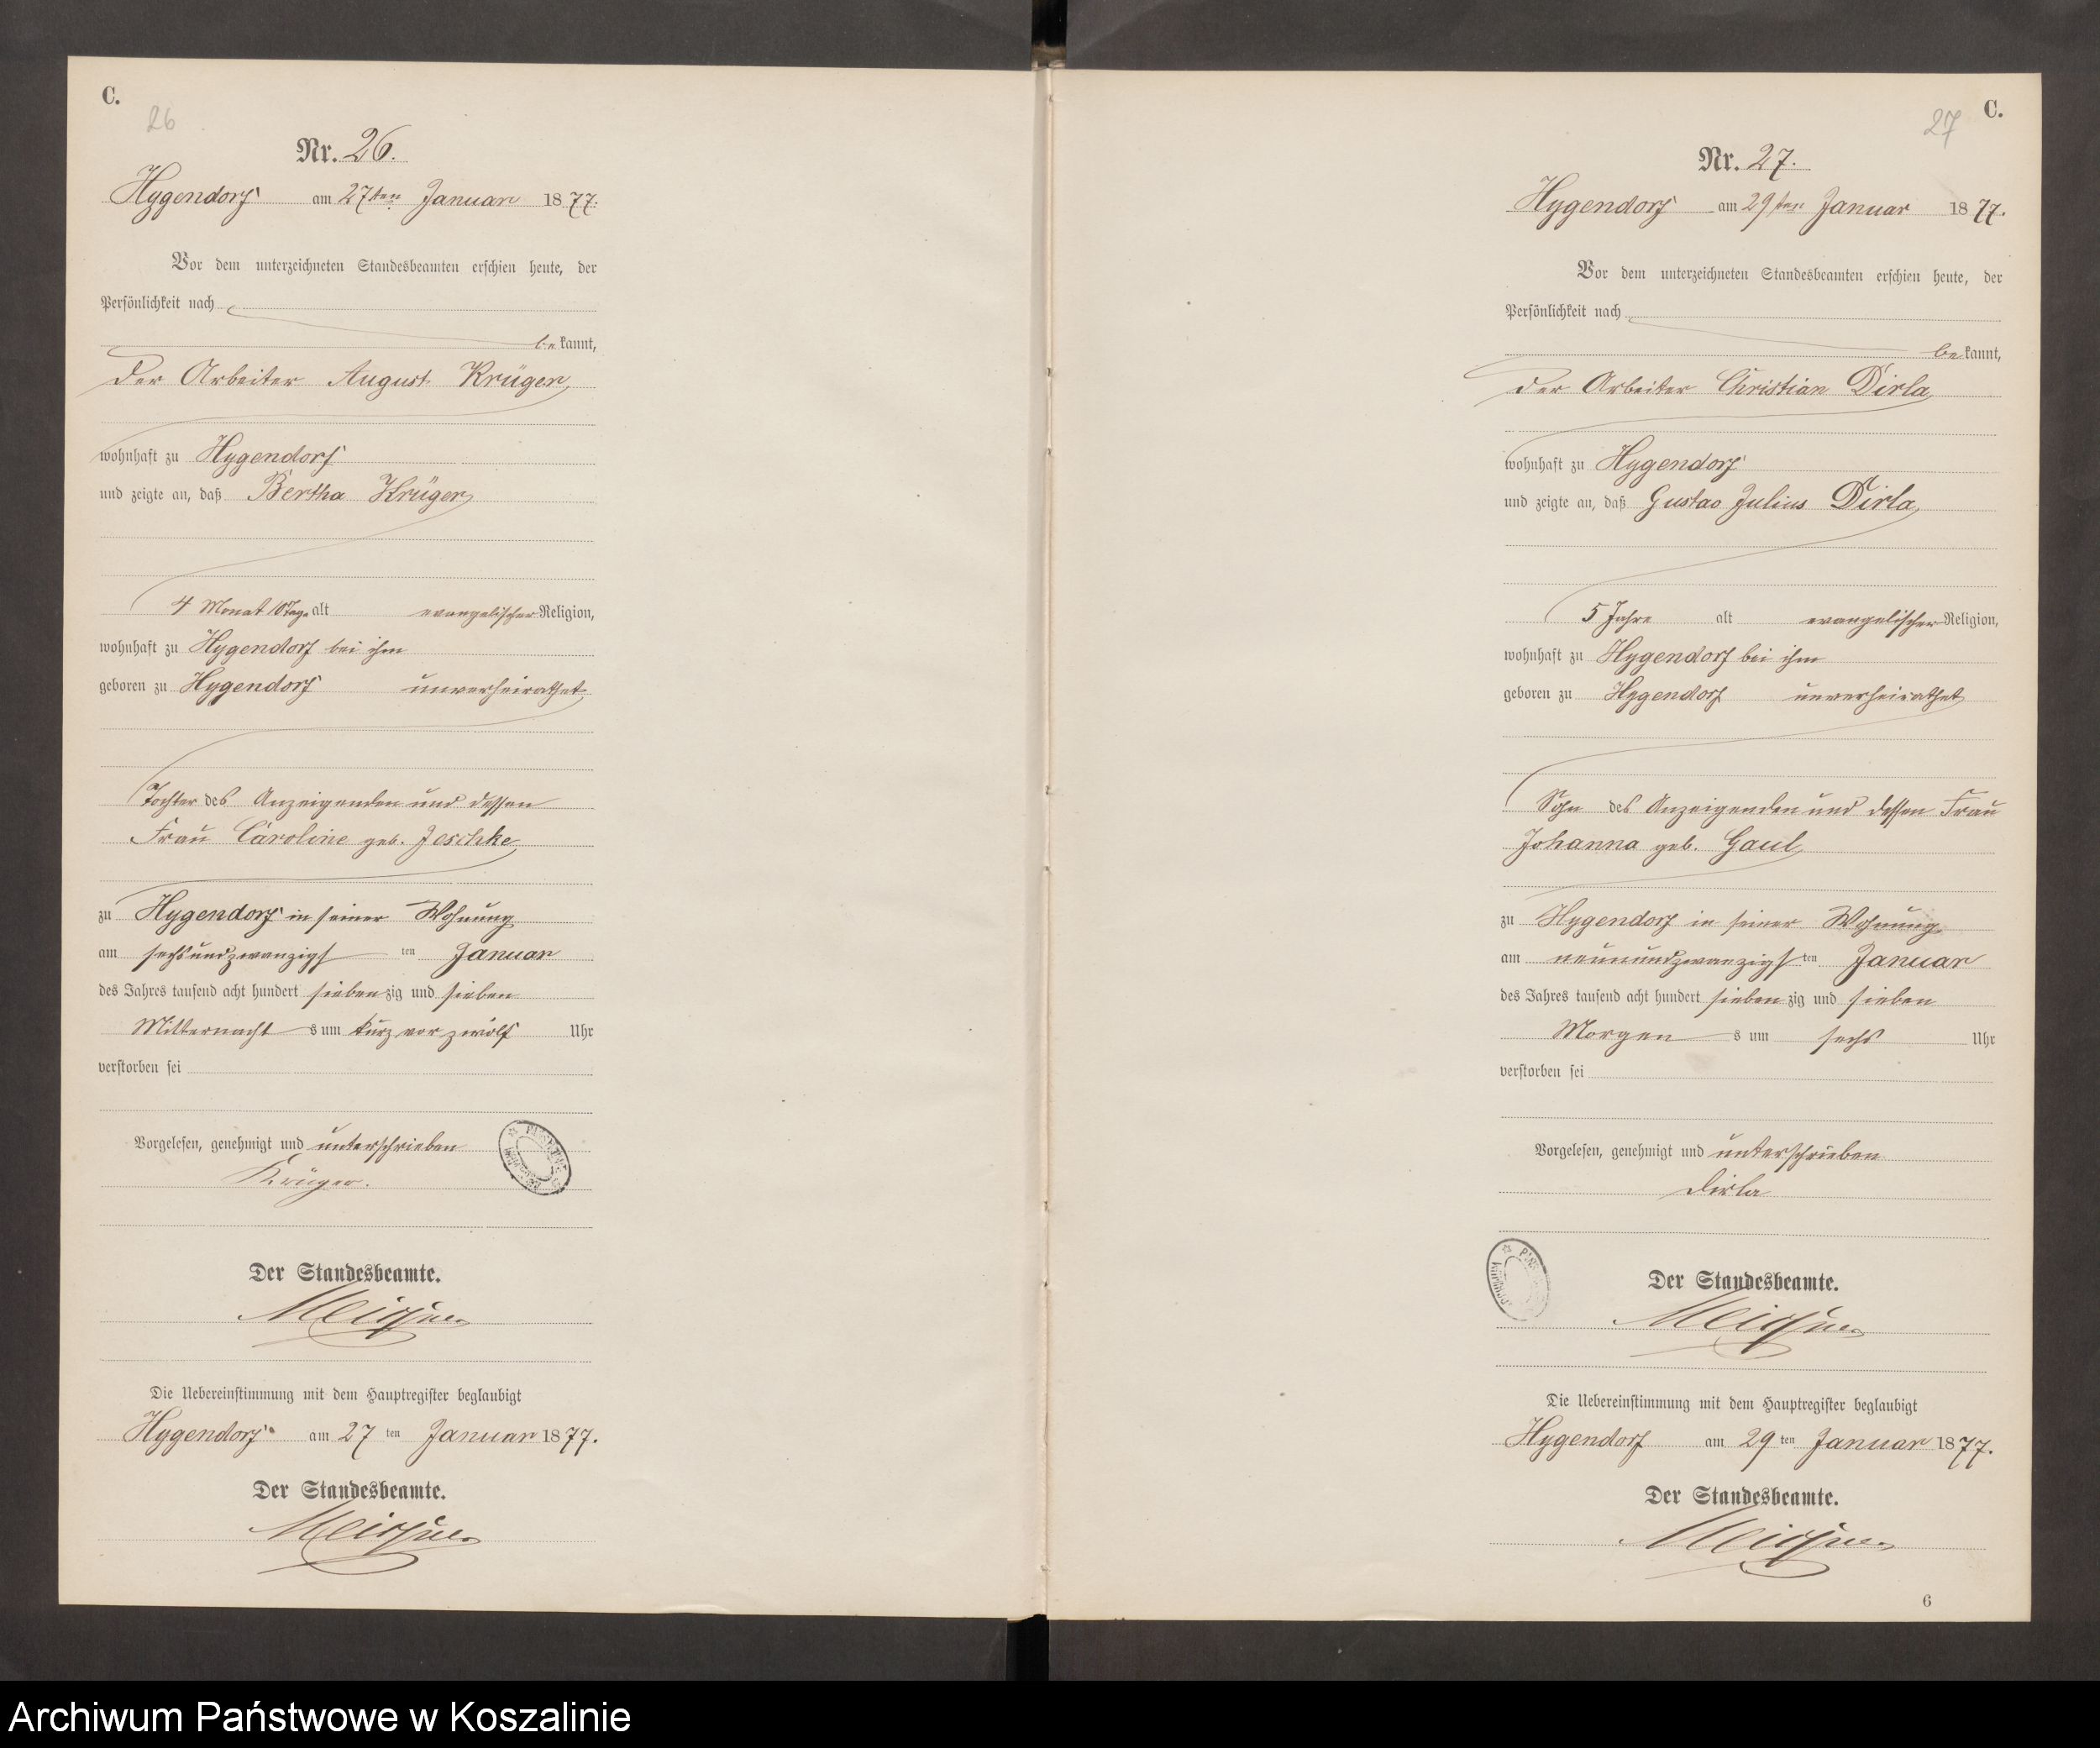 C.
26
Nr. 26.
Hygendorf am 27ten Januar 1877.
Vor dem unterzeichneten Standesbeamten erschien heute, der
Persönlichkeit nach
bekannt,
der Arbeiter August Krüger
wohnhaft zu Hygendorf
und zeigte an, daß Bertha Krüger
4 Monat 10 Tage alt evangelischer Religion,
wohnhaft zu Hygendorf bei ihm
geboren zu Hygendorf unverheirathet
Tochter des Anzeigenden und dessen
Frau Caroline geb. Jeschke
zu Hygendorf in seiner Wohnung
am sechsundzwanzigsten Januar
des Jahres tausend acht hundert siebenzig und sieben
Mitternachts um kurz vor zwölf Uhr
verstorben sei
Vorgelesen, genehmigt und unterschrieben
Krüger.
Der Standesbeamte.
Die Uebereinstimmung mit dem Hauptregister beglaubigt
Hygendorf am 27ten Januar 1877.
Der Standesbeamte.
C.
27
Nr. 27.
Hygendorf am 29ten Januar 1877.
Vor dem unterzeichneten Standesbeamten erschien heute, der
Persönlichkeit nach
bekannt,
der Arbeiter Christian Dirla
wohnhaft zu Hygendorf
und zeigte an, daß Gustav Julius Dirla
5 Jahre alt evangelischer Religion,
wohnhaft zu Hygendorf bei ihm
geboren zu Hygendorf unverheirathet
Sohn des Anzeigenden und dessen Frau
Johanna geb. Gaul
zu Hygendorf in seiner Wohnung
am neunundzwanzigsten Januar
des Jahres tausend acht hundert siebenzig und sieben
Morgens um sechs Uhr
verstorben sei
Vorgelesen, genehmigt und unterschrieben
Dirla
Der Standesbeamte.
Die Uebereinstimmung mit dem Hauptregister beglaubigt
Hygendorf am 29ten Januar 1877.
Der Standesbeamte.
6
Archiwum Państwowe w Koszalinie